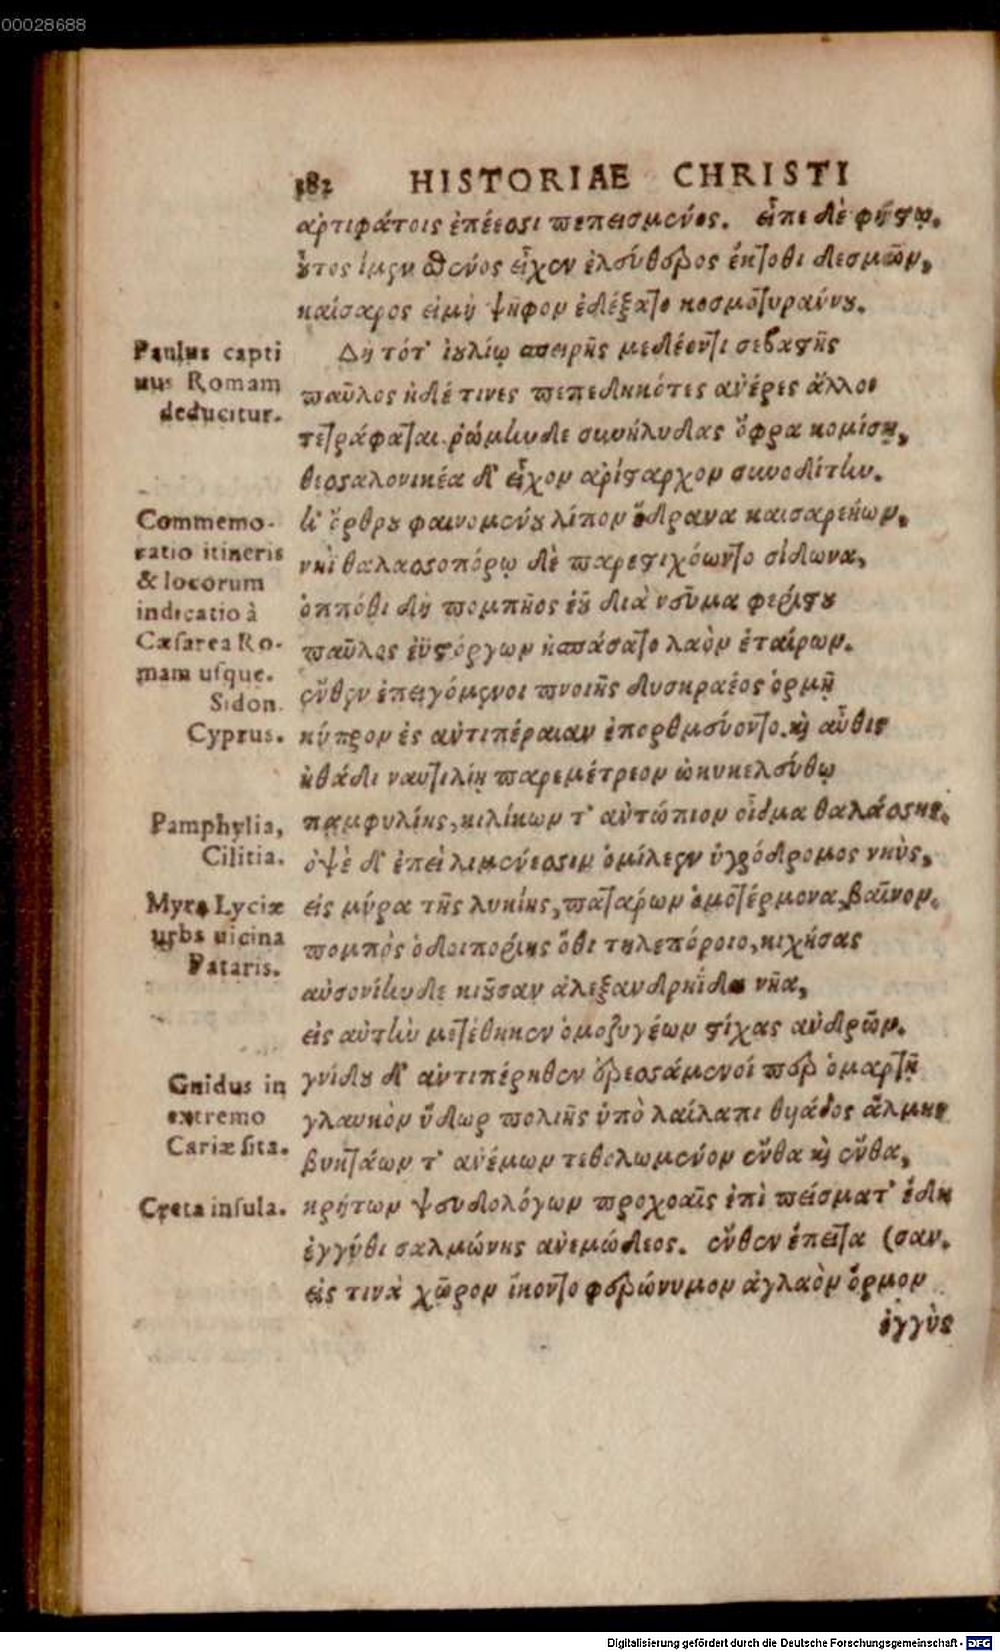 00028688
182 HISTORIAE CHRISTI
ἀρτιφάτοις ἐπέεσσι πεπεισμένος. εἶπε δὲ φήστῳ.
οὗτος ἴμεν σθένος εἶχεν ἐλεύθερος ἔκτοθι δεσμῶν,
καίσαρος εἰ μὴ ψῆφον ἐδέξατο κοσμοτυράννου.
Paulus capti
uus Romam
deducitur.
Δὴ τότ' ἰουλίῳ σπείρης μεδέοντι σεβαστῆς
παῦλος ἠδέ τινες πεπεδηκότες ἀνέρες ἄλλοι
τετράφαται ῥώμηνδε συνήλυδας ὄφρα κομίσῃ,
θεσσαλονικέα δ' εἶχον ἀρίσταρχον συνοδίτην.
Commemo-
ratio itineris
& locorum
indicatio à
Cæsarea Ro-
mam usque.
Sidon.
Cyprus.
δι' ὄρθρου φαινομένου λίπον ἕδρανα καισαρεήων,
νηῒ θαλασσοπόρῳ δὲ παρεστιχόωντο σίδωνα,
ὁππόθι δὴ πομπῆος ἐῢ διὰ νεῦμα φερίστου
παῦλος ἐϋστόργων ἠσπάσατο λαὸν ἑταίρων.
ἔνθεν ἐπειγόμενοι πνοιῆς δυσηραέος ὁρμῇ
κύπρον ἐς ἀντιπέραιαν ἐπορθμεύοντο. καὶ αὖθις
ἠθάδι ναυτιλίῃ παρεμέτρεον ὠκυκελεύθῳ
Pamphylia,
Cilitia.
παμφυλίης, κιλίκων τ' ἀντώπιον οἶδμα θαλάσσης.
ὀψὲ δ' ἐπεὶ λιμένεσσιν ὁμίλεεν ὑγρόδρομος νηὺς,
Myra Lyciæ
urbs uicina
Pataris.
εἰς μύρα τῆς λυκίης, παταρων ὁμοτέρμονα, βαῖνον.
πομπὸς ὁδοιπορίης ὅθι τηλεπόροιο, κιχήσας
αὐσονίηνδε κιοῦσαν ἀλεξανδρηΐδα νῆα,
εἰς αὐτὴν μετέθηκεν ὁμοζυγέων στίχας ἀνδρῶν.
Gnidus in
extremo
Cariæ sita.
γνίδου δ' ἀντιπέρηθεν ἐρεσσάμενοί περ ὁμαρτῇ
γλαυκὸν ὕδωρ πολιῆς ὑπὸ λαίλαπι θυιάδος ἅλμης
βυκτάων τ' ἀνέμων τεθολωμένον ἔνθα καὶ ἔνθα,
Creta insula.
κρήτων ψευδολόγων προχοαῖς ἐπὶ πείσματ' ἔδη
ἐγγύθι σαλμώνης ἀνεμώδεος. ἔνθεν ἔπειτα (σαν.
εἰς τινὰ χῶρον ἵκοντο φερώνυμον ἀγλαὸν ὅρμον
ἐγγὺς
Digitalisierung gefördert durch die Deutsche Forschungsgemeinschaft - DFG